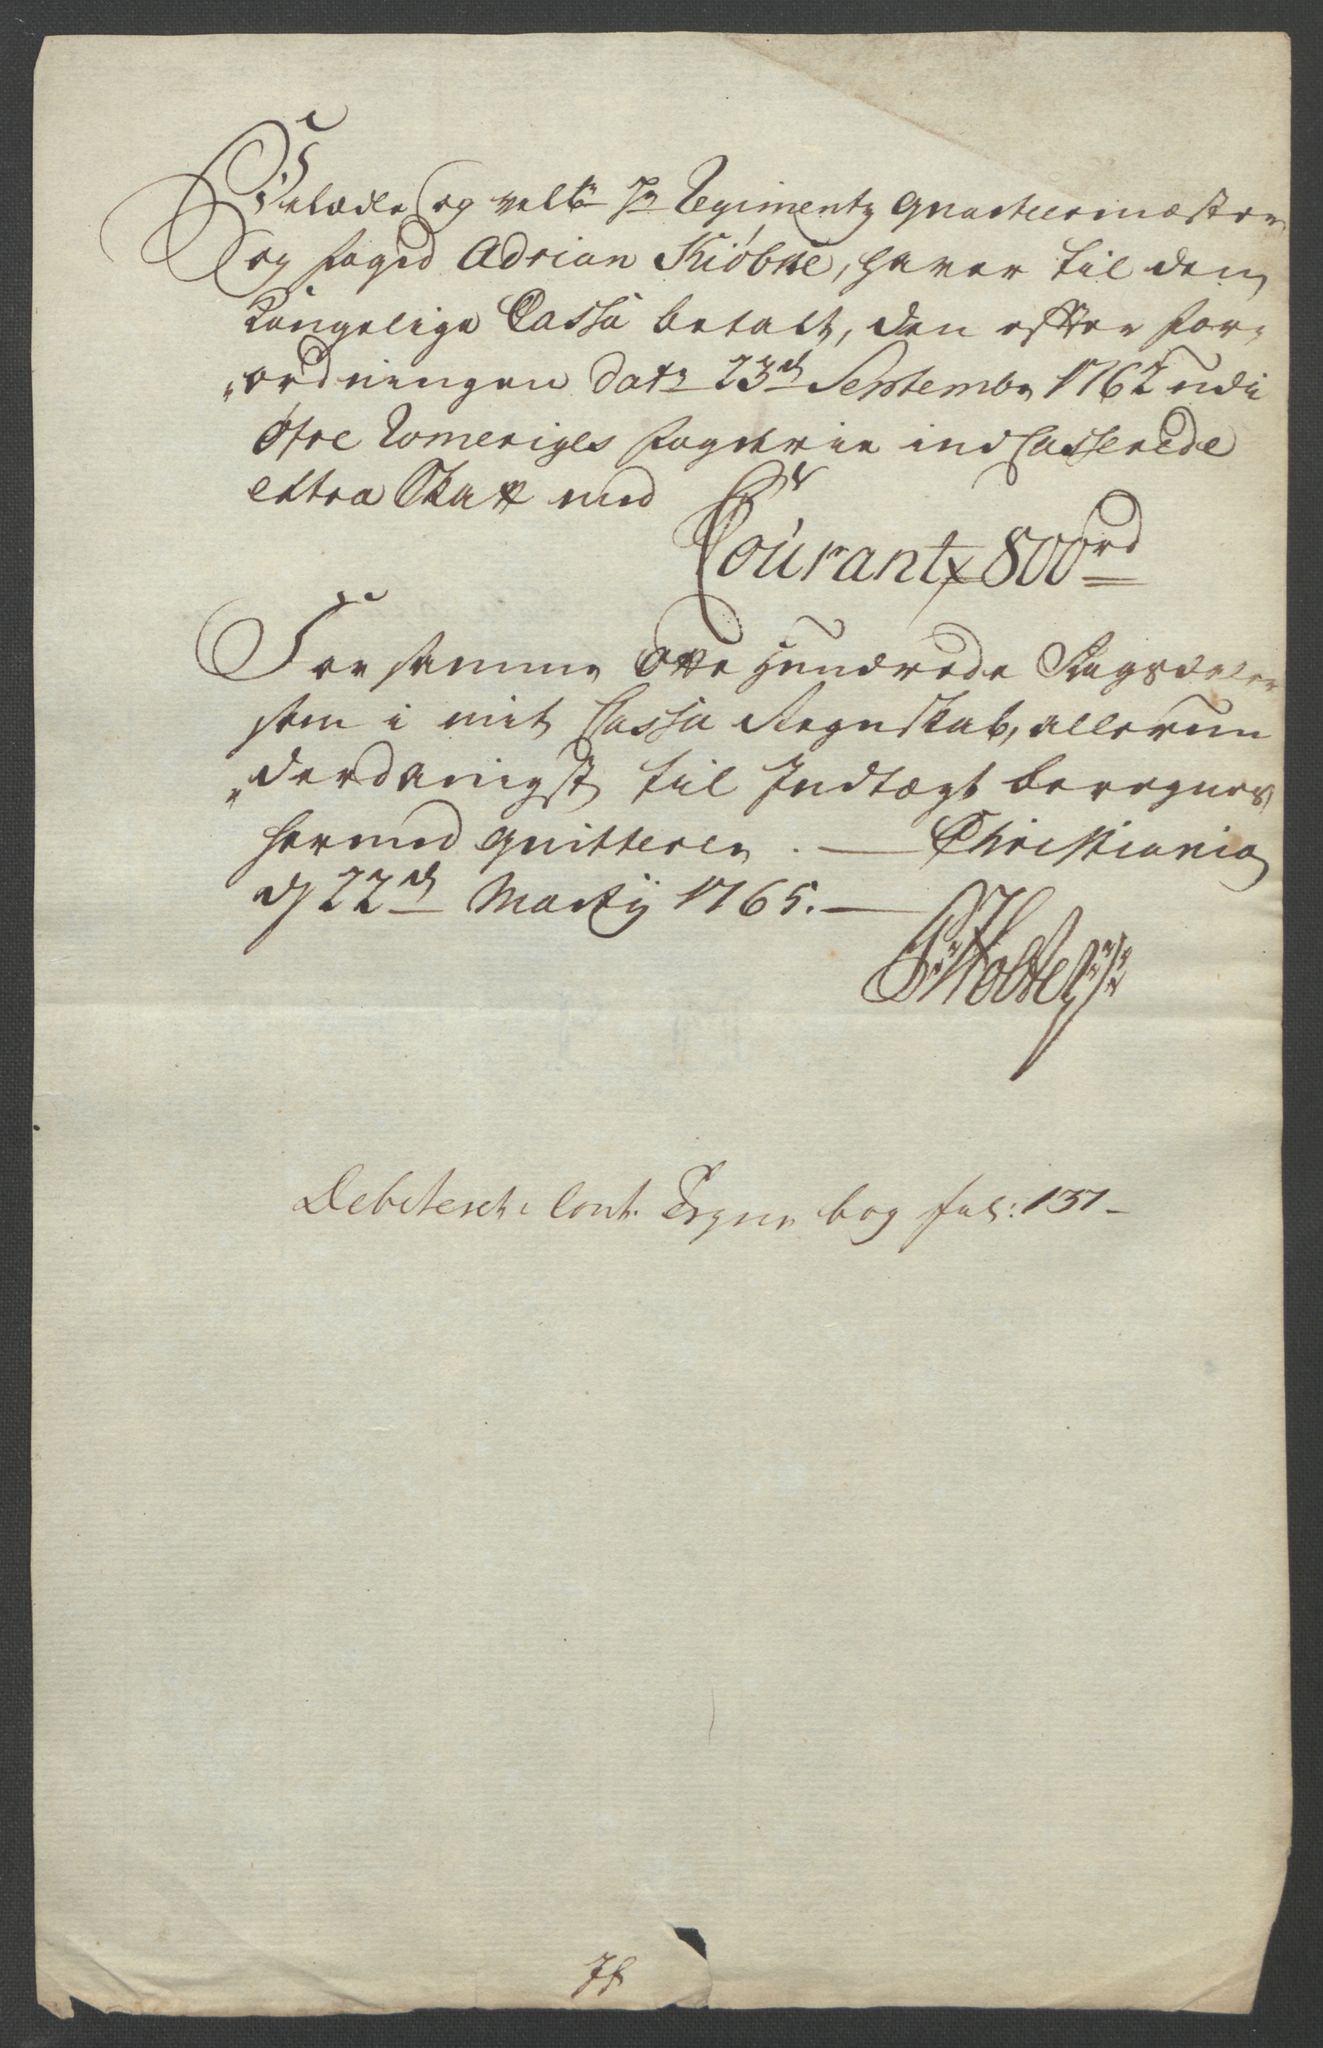 Velædle og velb: Hr Regiments Qvarteermæster
og foged Adrian Kiøbke, haver til den
Kongelige Cassa betalt, den efter For-
„ordningen Dat: 23d Septembr 1762 udi
Øfre Romeriges fogderie indCasserede
extra Skatt med
Courant x 800 rd
For samme Otte Hundrede Rigsdaler
som i mit Cassa Regnskab, allerun
„derdanigst til Indtægt beregnes
hermed qvitterer. — Christiania
d 22d Martij 1765. —
P: Holter
Debiteret i Cont. bog fol: 131 –